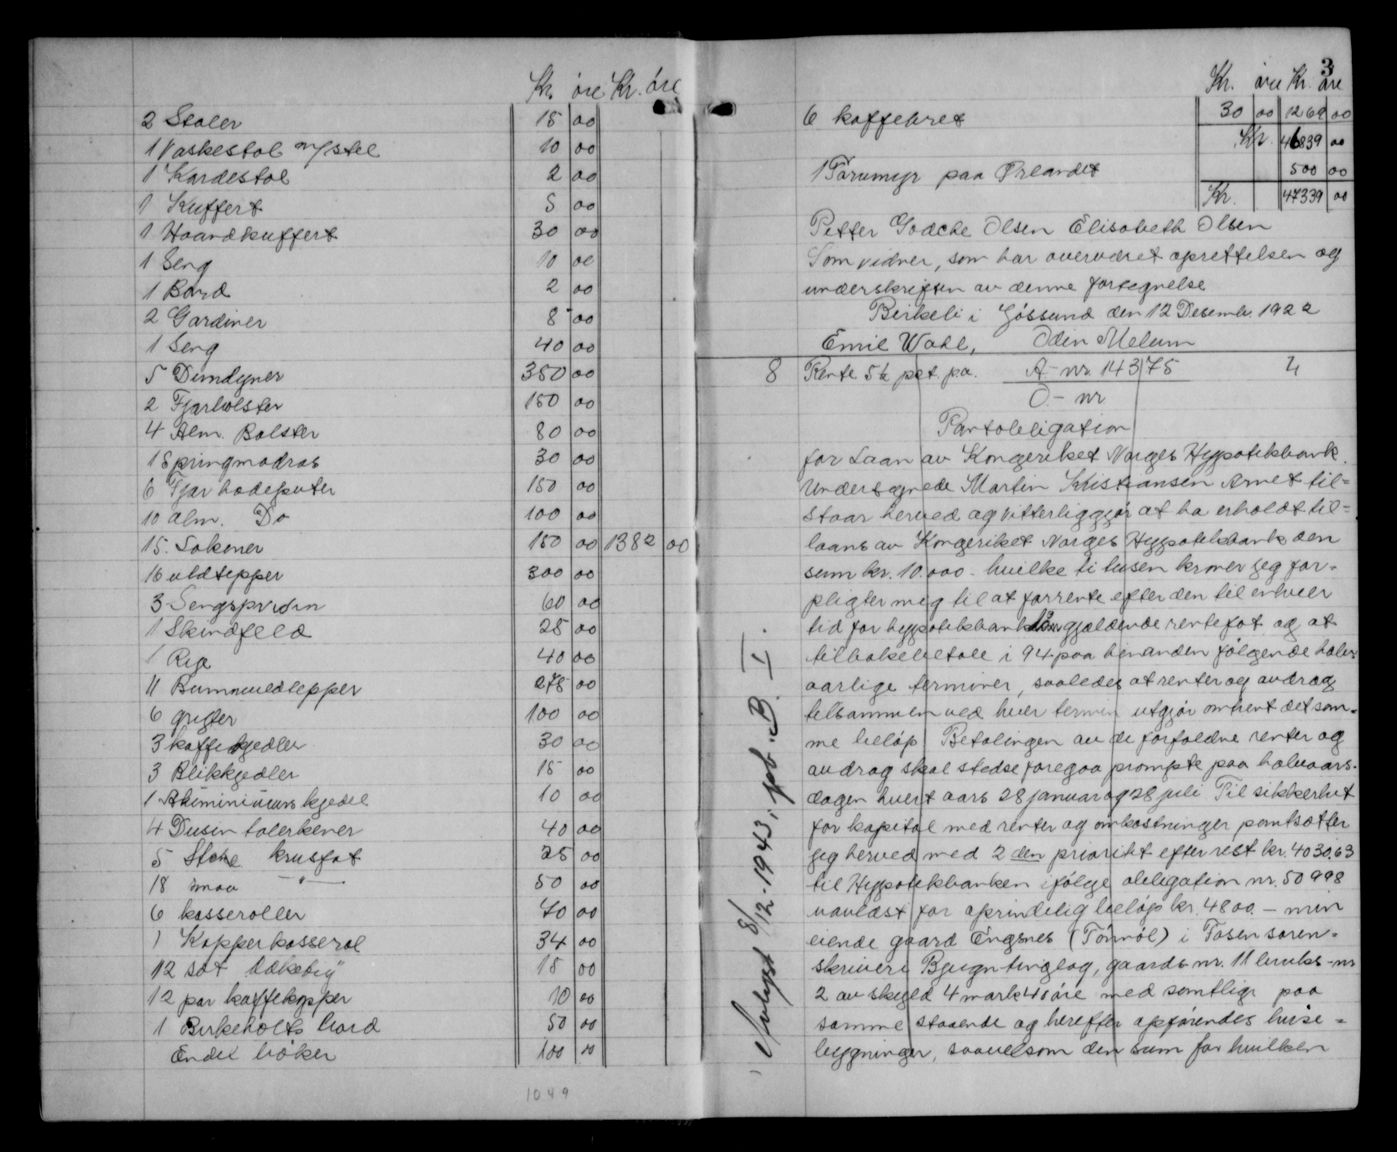 Kr. øre Kr. øre
2 Stoler 15 00
1 Vaskestol m/stel 10 00
1 Kardestol 2 00
1 Kuffert 5 00
1 Haandkuffert 30 00
1 Seng 10 00
1 Bord 2 00
2 Gardiner 8 00
1 Seng 40 00
5 Dundyner 350 00
2 Fjærbolster 150 00
4 Alm. Bolster 80 00
1 Springmadras 30 00
6 Fjær hodeputer 150 00
10 alm. Do 100 00
15 Lakener 150 00 1382 00
16 uldtepper 300 00
3 Sengspreden 60 00
1 Skindfeld 25 00
1 Rye 40 00
11 Bummuldtepper 275 00
6 gryter 100 00
3 kaffekjedler 30 00
3 Blikkjedler 15 00
1 Aluminiums kjedel 10 00
4 Dusin talerkener 40 00
5 Store krusfat 25 00
18 smaa —"— 50 00
6 kasseroller 70 00
1 Kopperkasserol 34 00
12 sat 15 00
12 par kaffekopper 10 00
1 Birkeholts bord 50 00
Endel bøker 100 00
1049
3
Kr. øre Kr. øre
6 kaffebret 30 00 1269 00
Kr. 46839 00
1 Torvmyr paa Ørlandet 500 00
Kr. 47339 00
Petter Godche Olsen Elisabeth Olsen
Som vidner, som har overværet oprettelsen og
underskriften av denne fortegnelse
Birkeli i Jøssund den 12 Desembr. 1922
Emil Wahl, Odin Melum
8 Rente 5½ pct pa. A-nr 14375 4
O.-nr
Pantobligation
for Laan av Kongeriket Norges Hypotekbank.
Undertegnede Martin Kristiansen Arnet til=
staar herved og vitterliggjør at ha erholdt til=
laans av Kongeriket Norges Hypotekbank den
sum kr. 10.000.- hvilke ti tusen kroner jeg for-
pligter mig til at forrente efter den til enhver
tid for hypotekbanklån gjældende rentefot og at
tilbakebetale i 94 paa hinanden følgende halv-
aarlige terminer, saaledes at renter og avdrag
tilsammen ved hver termin utgjør omtrent det sam-
me beløp. Betalingen av de forfaldne renter og
avdrag skal stedse foregaa prompte paa halvaars-
dagen hvert aars 28 januar og 28 juli. Til sikkerhet
for kapital med renter og omkostninger pantsætter
jeg herved med 2 den prioritet efter rest kr. 4030,63
til Hypotekbanken ifølge obligation nr. 50998
uavlæst for oprindelig beløp kr. 4800.- min
eiende gaard Engsnes (Tønnøl) i Fosen soren-
skriveri Bjugn tinglag, gaards nr. 11 bruks-nr
2 av skyld 4 mark 48 øre med samtlige paa
samme staaende og herefter opførendes huse=
bygninger, saavelsom den sum for hvilken
Avlyst 8/12-1943, jvf. B. I.